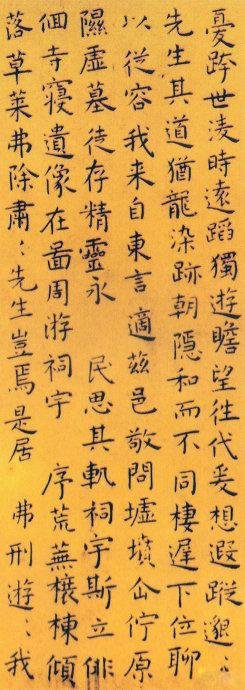 憂跨世凌時遠蹈獨遊瞻望往代爰想遐蹤邈〻
先生其道猶龍染跡朝隱和而不同棲遲下位聊
以從容我来自東言適茲邑敬問墟墳企佇原
隰虛墓徒存精靈永 民思其軌祠宇斯立俳
佪寺寑遺像在啚周游祠宇 序荒蕪榱棟傾
落草萊弗除肅〻先生豈焉是居 弗刑遊〻我